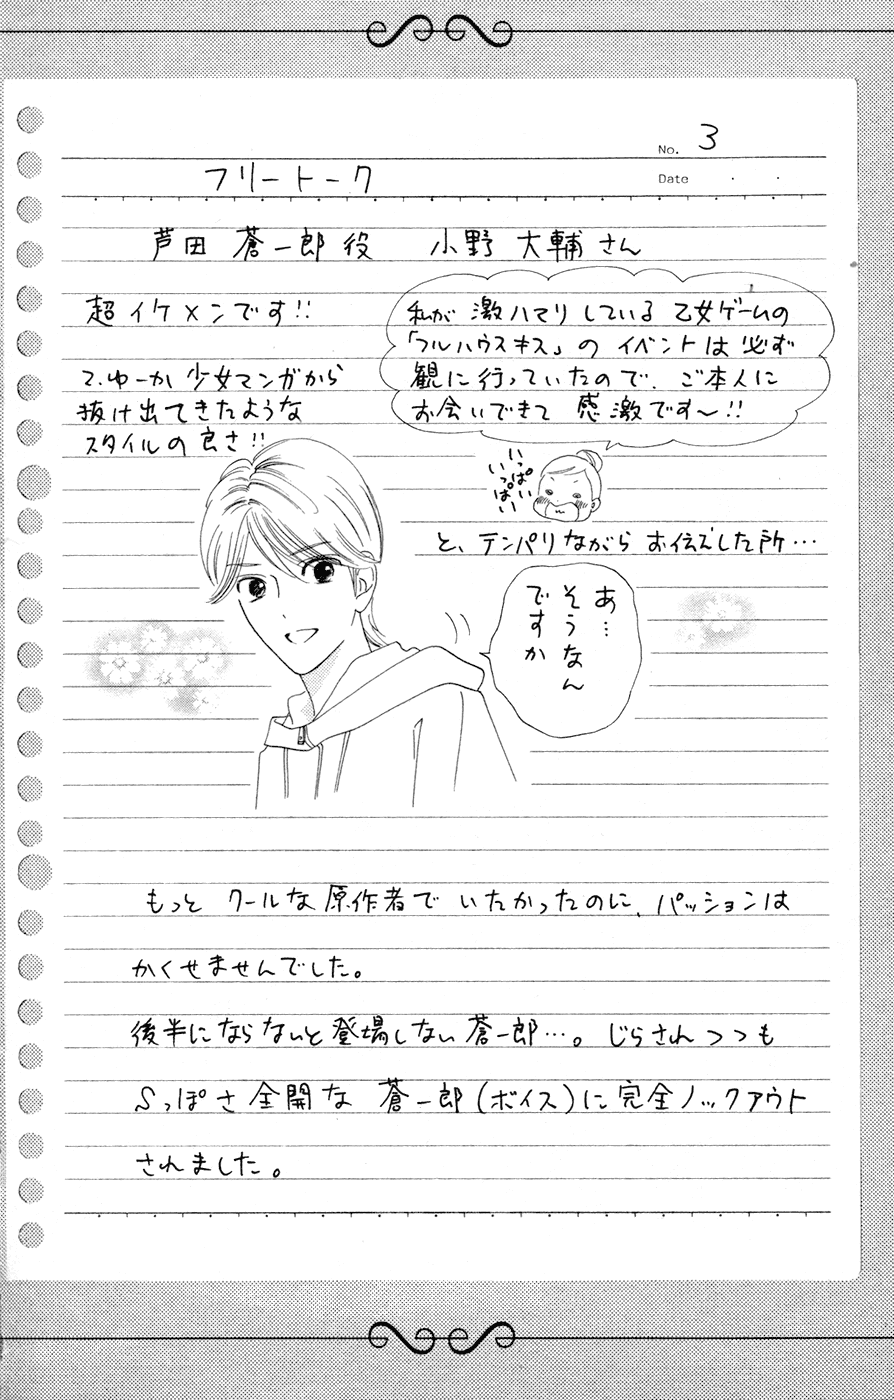 No. 3
フリートーク
Date ・ ・
芦田 蒼一郎 役 小野 大輔 さん
超 イケメンです!!
て.ゆーか 少女マンガから
抜け出てきたような
スタイルの 良さ!!
私が 激ハマリ している 乙女ゲームの
「フルハウスキス」の イベントは 必ず
観に行っていたので、ご本人に
お会いできて 感激です〜!!
いっぱい
いっぱい
と、テンパリながら お伝えした所…
あ…
そうなん
ですか
もっと クールな 原作者で いたかったのに、パッションは
かくせませんでした。
後半にならないと登場しない 蒼一郎…。じらされつつも
Sっぽさ 全開な 蒼一郎(ボイス)に 完全ノックアウト
されました。